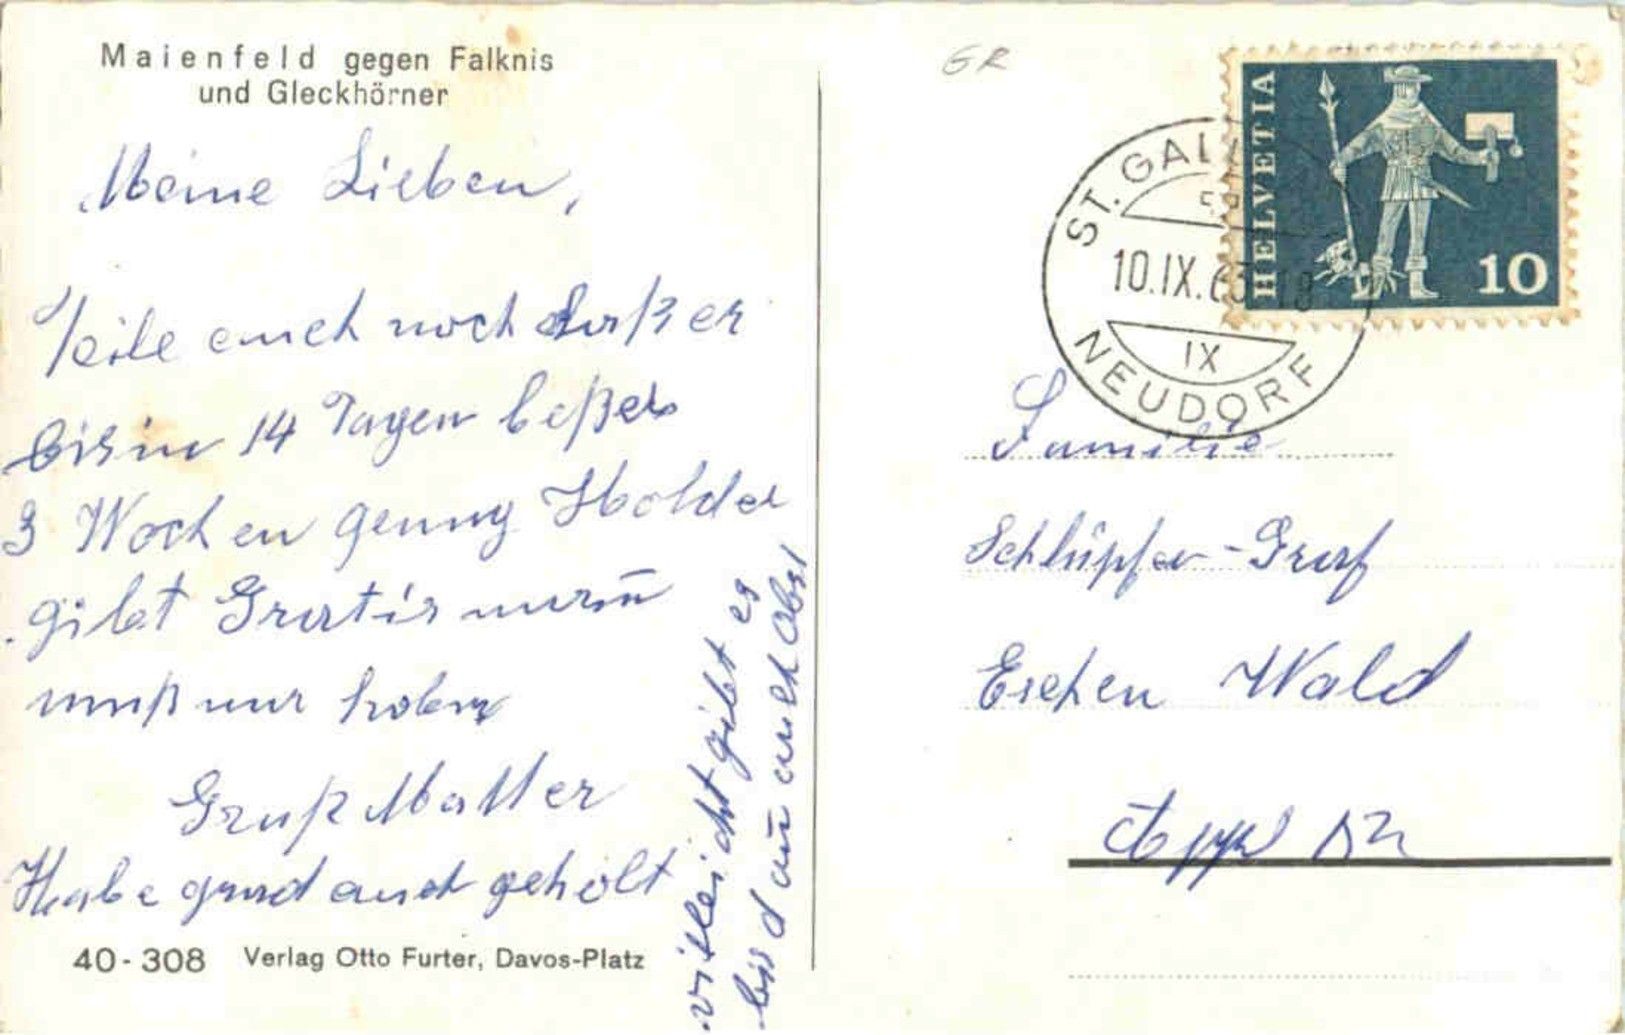 Maienfeld gegen Falknis
und Gleckhörner
Meine Lieben,
Teile euch noch daß er
bis in 14 Tagen beßer
3 Wochen genug Holder
gibt Gratis man
muß nur holen
Gruß Mutter
Habe grad auch geholt
villeicht gibt es
bis dan auch Obst
40-308 Verlag Otto Furter, Davos-Platz
GR
ST. GALLEN
10.IX.63 18
IX
NEUDORF
HELVETIA
10
Familie
Schlüpfer-Graf
Eschen Wald